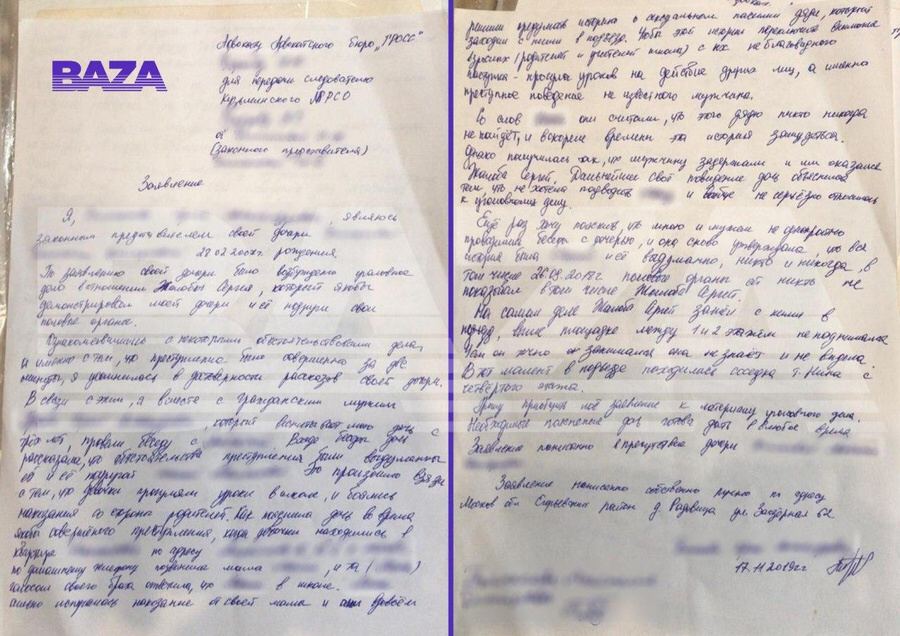 BAZA
Адвокату Адвокатского бюро „ГРОСС"
для передачи следователю
Кузьминского МРСО
от
(законного представителя)
Заявление
Я, , являюсь
законным представителем своей дочери
28.02.200 рождения.
По заявлению своей дочери было возбуждено уголовное
дело в отношении Жалобы Сергея, который якобы
демонстрировал моей дочери и её подруги свои
половые органы.
Ознакомившись с некоторыми обстоятельствами дела,
и именно с тем, что преступление было совершено за две
минуты, я усомнилась в достоверности рассказов своей дочери.
В связи с этим, я вместе с гражданским мужем
, который воспитывает мою дочь с
трёх лет, провели беседу с . В ходе беседы дочь
рассказала, что обстоятельства преступления были выдуманны
её и её подругой . Это произошло в связи
с тем, что девочки прогуляли уроки в школе, и боялись
наказания со стороны родителей. Как пояснила дочь во время
якобы совершённого преступления, когда девочки находились в
квартире по адресу
по домашнему телефону позвонила мама , и та ( )
голосом своего брата ответила, что в школе.
сильно испугалась наказание от своей мамы и они вдвоём
решили придумать историю о сексуальном насилии дяди, который
заходил с ними в подъезд. Чтобы этой истории переключить внимание
взрослых (родителей и учителей школы) с их не благовидного
поступка - прогула уроков на действие других лиц, а именно
преступное поведение не известного мужчины.
Со слов они считали, что этого дядю никто никогда
не найдёт, и вскоре времени эта история замудеться.
Однако получилось так, что мужчину задержали и им оказался
Жалоба Сергей. Дальнейшее своё поведение дочь объяснила
тем что не хотела подводить и вообще не серьёзно относилась
к уголовному делу.
Ещё раз хочу пояснить, что мною и мужем не однократно
проводились беседы с дочерью, и она снова утверждала что вся
история была и её выдуманно, никто и никогда, в
том числе 26.09.201 г. половые органы от никто не
показывал в том числе Жалоба Сергей.
На самом деле Жалоба Сергей зашёл с ними в
подъезд, выше площадке между 1 и 2 этажём не поднимался
Чем он точно он занимался она не знает и не видела.
В тот момент в подъезде находилась соседка т. Нина с
четвёртого этажа.
Прошу приобщить моё заявление к материалу уголовного дела.
Необходимые пояснение дочь готова дать в любое время.
Заявление написанно в присутствие дочери
Заявление написанно собственно ручно по адресу
Москов обл. район д. ул. Заозёрная 62
17.11.2019г